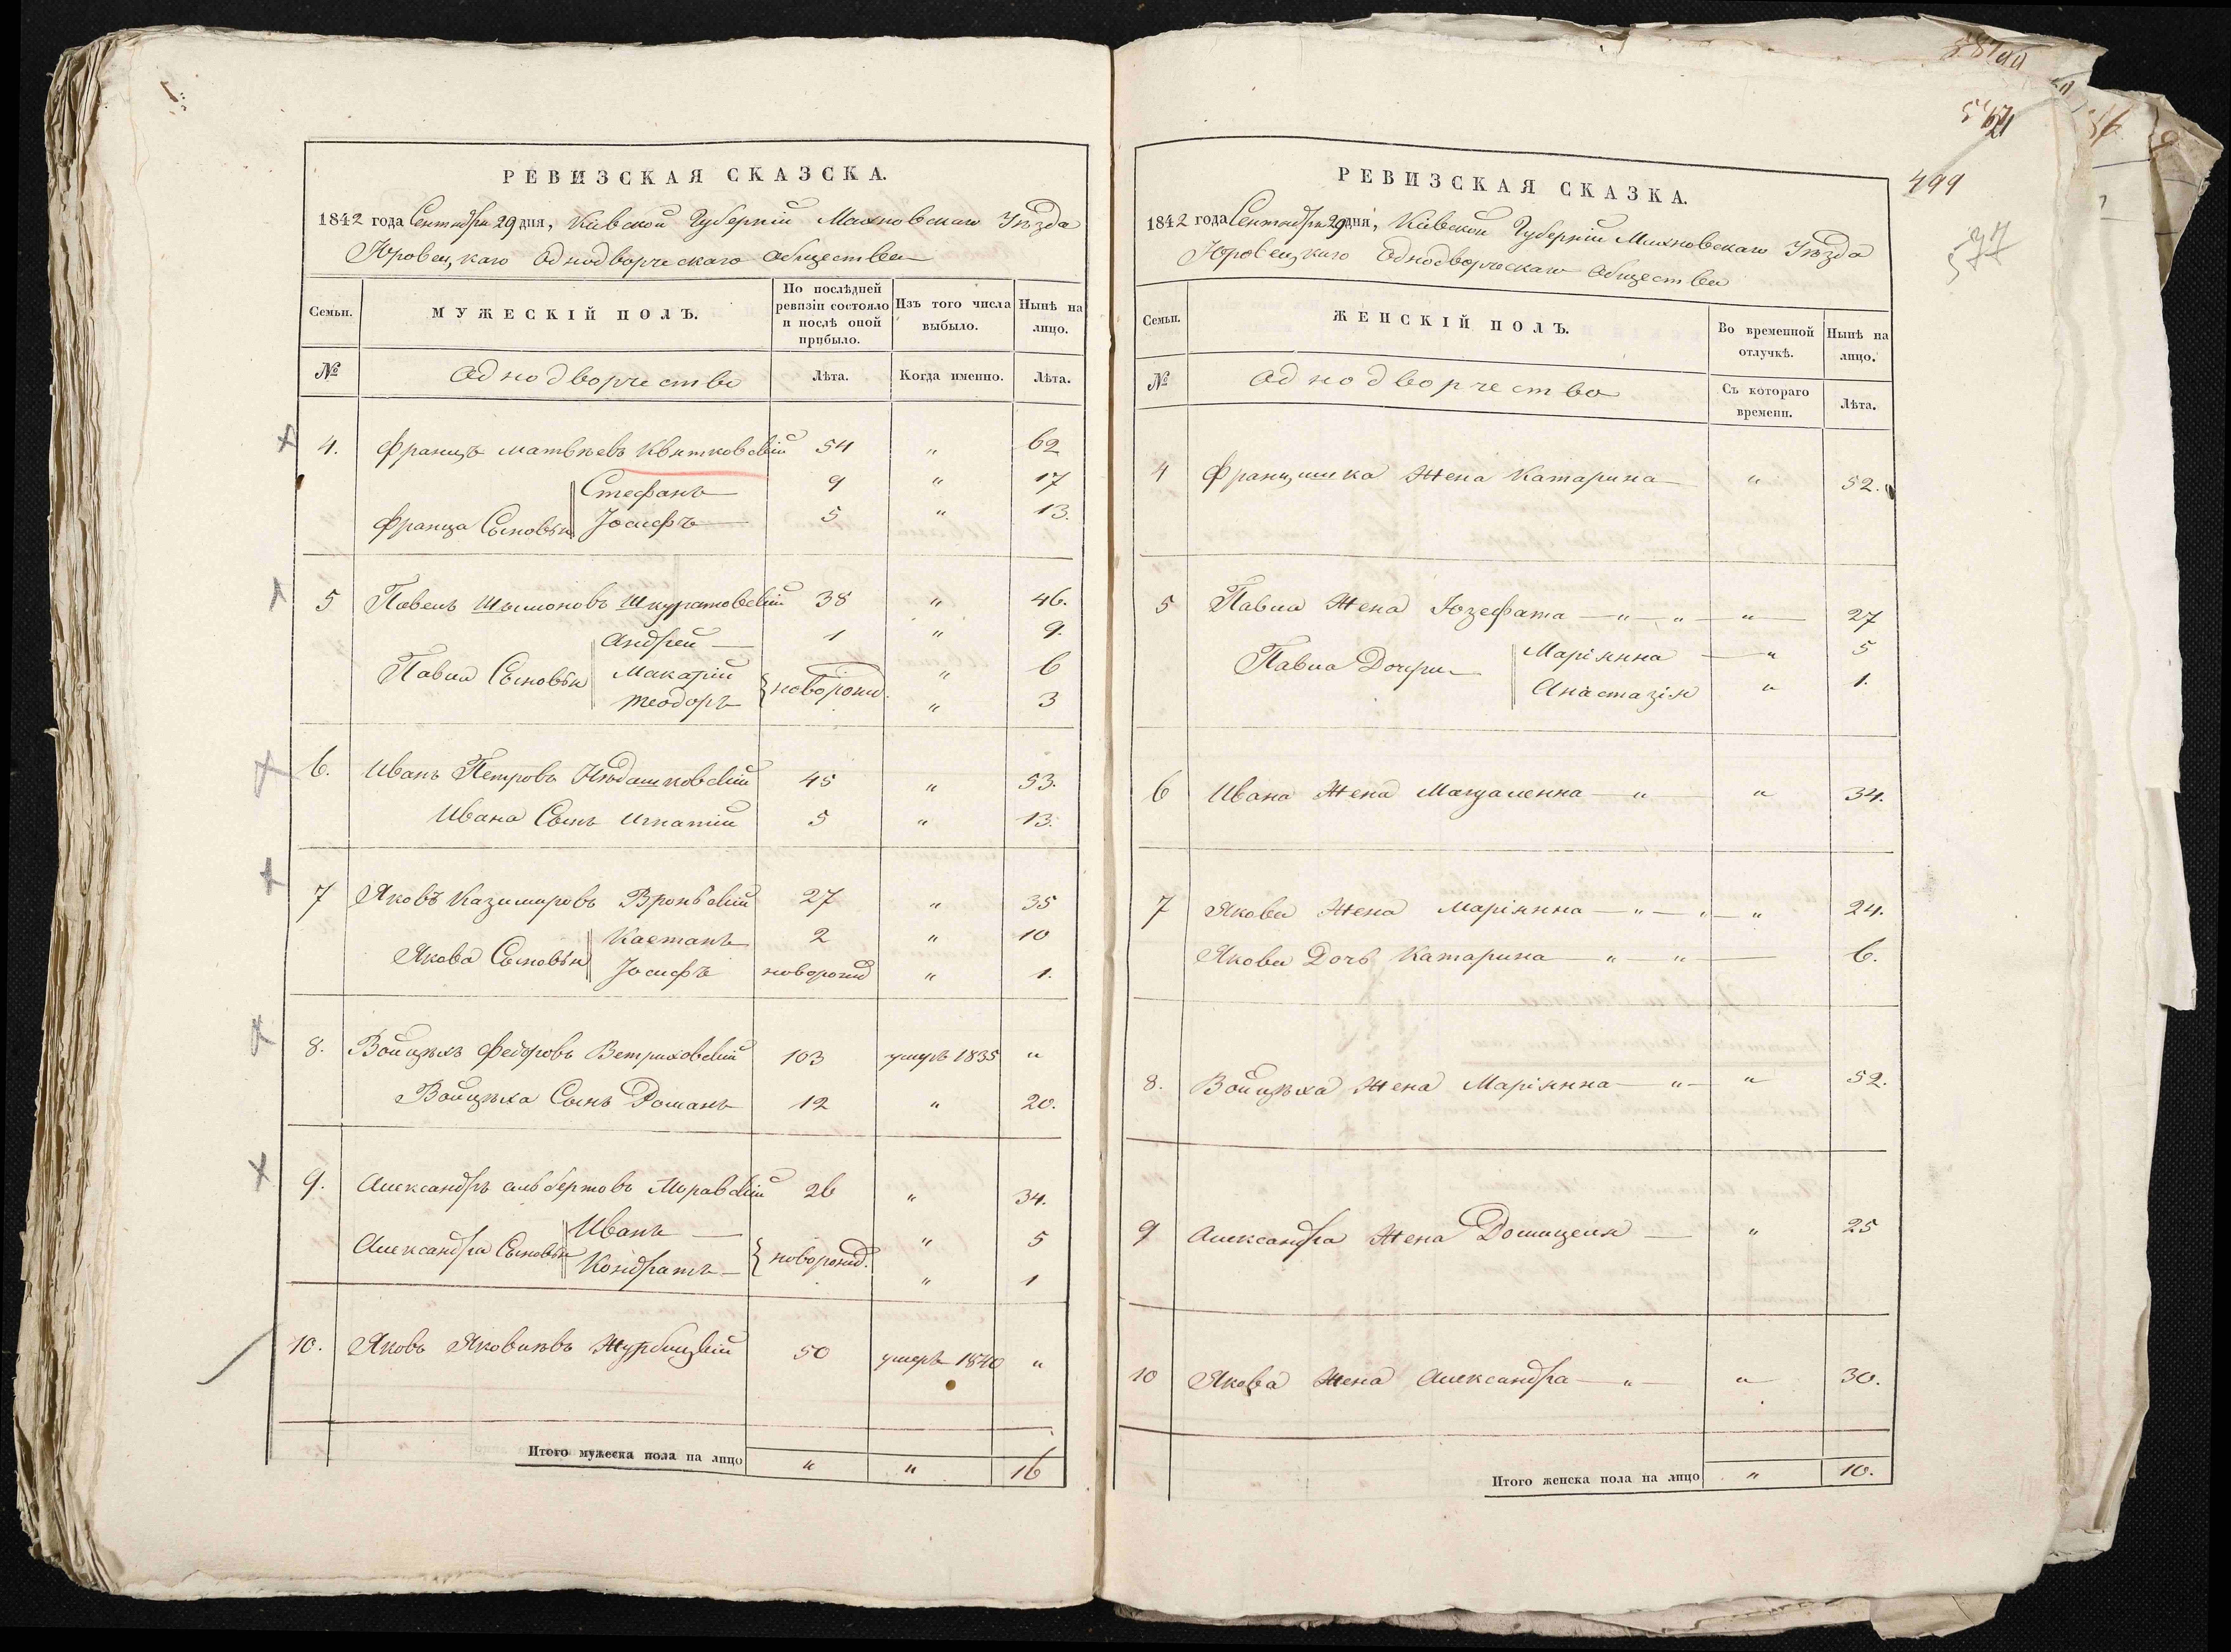 РЕВИЗСКАЯ СКАЗСКА.
1842 года Сентября 29 дня, Кіевской Губерніи Махновскаго Уѣзда
Юровецкаго Однодворческаго общества
Семьи.
МУЖЕСКІЙ ПОЛЪ.
По послѣдней ревизіи состояло и послѣ оной прибыло.
Изъ того числа выбыло.
Нынѣ на лицо.
№
Однодворчество
Лѣта.
Когда именно.
Лѣта.
4. Францъ Матвѣевъ Квятковскій 54 " 62
Франца Сыновья Стефанъ 9 " 17
Іосифъ 5 " 13.
5 Павелъ Шымоновъ Шкуратовскій 38 " 46.
Павла Сыновья Андрей 1 " 9.
Макарій новорожд. " 6
Теодоръ " 3
6. Иванъ Петровъ Нюдашковскій 45 " 53.
Ивана Сынъ Игнатій 5 " 13.
7 Яковъ Казимировъ Вронскій 27 " 35
Якова Сыновья Каетанъ 2 " 10
Іосифъ новорожд " 1.
8. Войцѣхъ Федоровъ Ветриховскій 103 умеръ 1835 "
Войцѣха Сынъ Романъ 12 " 20.
9. Александръ Альбертовъ Моравскій 26 " 34.
Александра Сыновья Иванъ новорожд. " 5
Кондратъ " 1
10. Яковъ Яковлевъ Журбицкій 50 умеръ 1840 "
Итого мужеска пола на лицо " " 16
499
577
РЕВИЗСКАЯ СКАЗКА.
1842 года Сентября 29 дня, Кіевской Губерніи Махновскаго Уѣзда
Юровецкаго Однодворческаго Общества
Семьи.
ЖЕНСКІЙ ПОЛЪ.
Во временной отлучкѣ.
Нынѣ на лицо.
№
Однодворчество
Съ котораго времени.
Лѣта.
4 Францишка Жена Катарина " 52.
5 Павла Жена Юзефата — " — " — " 27
Павла Дочери Маріянна — " 5
Анастазія " 1.
6 Ивана Жена Магдаленна — " — " 34.
7 Якова Жена Маріянна — " — " — " 24.
Якова Дочь Катарина — " — " — 6.
8. Войцѣха Жена Маріянна — " — " 52.
9 Александра Жена Домицеля — " 25
10 Якова Жена Александра — " — " 30.
Итого женска пола на лицо " 10.